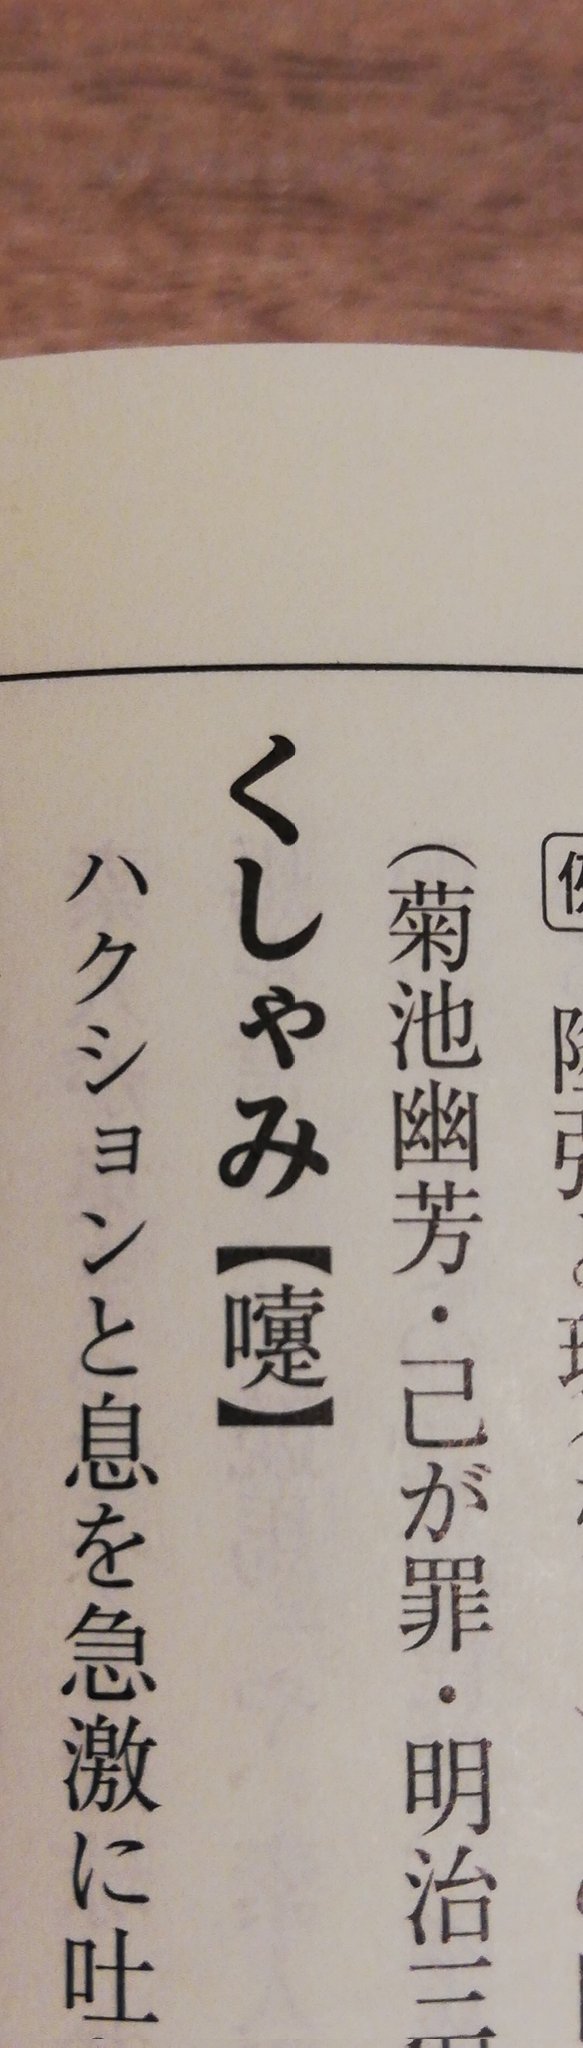 (菊池幽芳・己が罪・明治三
くしゃみ【嚔】
ハクションと息を急激に吐